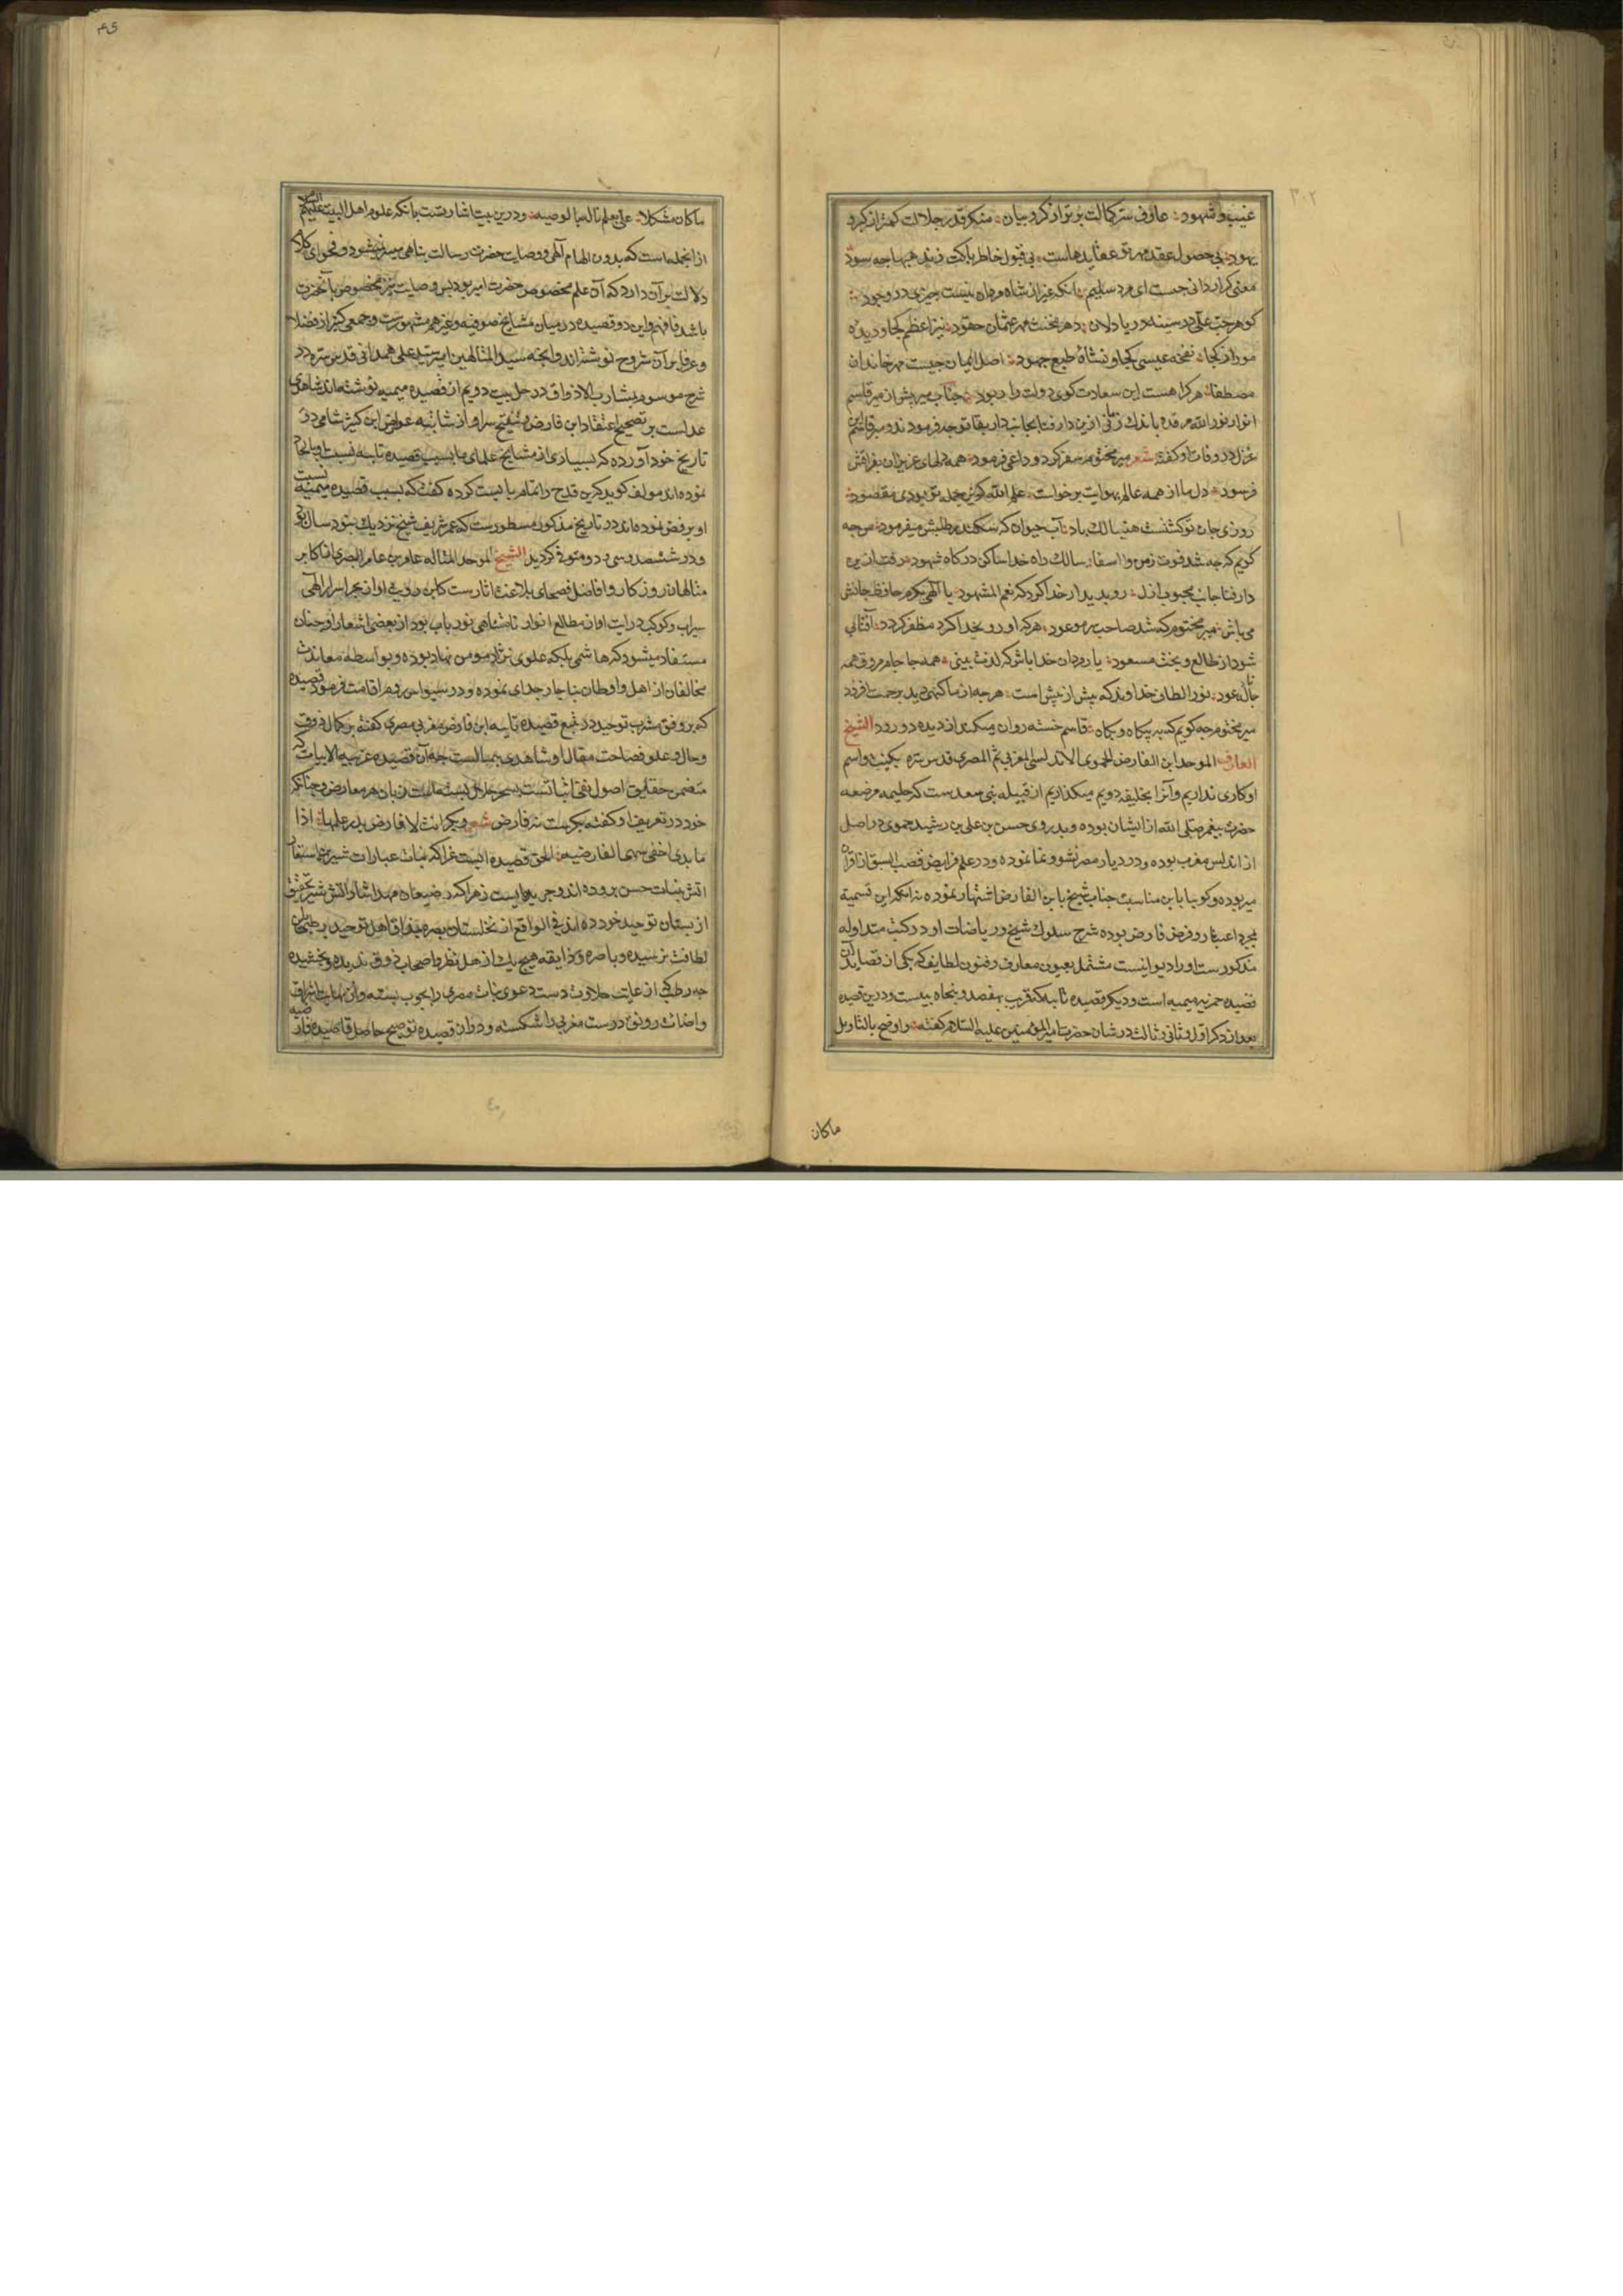 غیب و شهود عارف سر کمالت برتر از کروبیان منکر قدر جلالت کمتر از کبر و
یهود بی حصول عقد مهر تو عقاید هاست بی قبول خاطر پاکت فرید همها چه سود
معنی کرار دانی چیست ای مرد سلیم آنکه غیر از شاه مردان نیست چیزی در وجود
کوهر حب علی در سینه دریا دلان دهر بخت مهر عثمان حقود نیر اعظم کجا و دیده
مور از کجا نفخه عیسی کجا و نشأه طبع جهود اصل ایمان چیست مهر خاندان
مصطفا هر کرا هست این سعادت کوی دولت را ربود جناب میر پیش از میر قاسم
انوار نور الله مرقده باندک زمانی ازین دار فنا بجانب دار بقا توجه فرمودند و میر قاسم این
غزل در وفات او کفته شعر میر مختوم سفر کرد و داعی فرمود همه دلهای عزیزان بفراقش
فرسود دل ما از همه عالم بهوایت برخواست علم الله که زین جمله تو بودی مقصود
روزی جان تو کشتست هنیا لک باد آب حیوان که سکندر بطلبش میفرمود من چه
کویم که چه شد فوت زمن وا اسفا سالک راه خدا ساکن درکاه شهود رفت ازین
دار فنا جانب محبوب ازل روبدیدار خدا کرد که نعم المشهود یا الهی بکرم حافظ جانش
می باش میر مختوم که شد صاحب سر موعود هر که او رو بخدا کرد مظفر کردد آفتابی
شود از طالع و بخت مسعود یار مردان خدا باش که لذت بینی همه جا جام مروق همه
جا ناله عود نور الطاف خداوند که بیش از پیش است هر چه از ما کنهی دید برحمت افزود
میر مختوم چه کویم که به بیکاه و بکاه قاسم خسته روان میکند از دیده دو رود الشیخ
العارف الموحد ابن الفارض الحموی الاندلسی المغربی ثم المصری قدس سره بکنیت و اسم
او کاری نداریم و آنرا بخلیفه دویم میکذاریم از قبیله بنی سعدست که حلیمه مرضعه
حضرت پیغمبر صلی الله از ایشان بوده و پدر وی حسن بن علی بن رشید حموی در اصل
از اندلس مغرب بوده و در دیار مصر نشو و نما نموده و در علم فرایض قصب السبق از اقران
میربوده و کویا باین مناسبت جناب شیخ بابن الفارض اشتهار نموده نه آنکه این تسمیه
بمجرد اعتبار و فرض فارض بوده شرح سلوک شیخ و ریاضات او در کتب متداوله
مذکورست او را دیوانیست مشتمل بعیون معارف و فنون لطایف که یکی از قصاید آن
قصیده خمریه میمیه است و دیکر قصیده تائیه که قریب بهفصد و پنجاه بیتست و درین قصیده
بعد از ذکر اول و ثانی و ثالث در شان حضرت امیر المؤمنین علیه السلام کفته و اوضح بالتاویل
ماکان
ماکان مشکلا علی بعلم ناله بالوصیه و درین بیت اشارتست بآنکه علوم اهل البیت علیهم السلام
از انجمله است که بدون الهام الهی و وصایت حضرت رسالت پناهی میسر نشود و فحوای کلام
دلالت بر آن دارد که آن علم مخصوص حضرت امیر بود پس وصایت نیز مخصوص بآنحضرت
باشد فافهم و این دو قصیده در میان مشایخ صوفیه و غیرهم مشهورست و جمعی کثیر از فضلا
و عرفا بر آن شروح نوشته اند و آنچه سید المتالهین امیر سید علی همدانی قدس سره در
شرح موسوم بمشارب الاذواق در حل بیت دویم از قصیده میمیه نوشته اند شاهدی
عدلست بر تصحیح اعتقاد ابن فارض و تنقیح سراو از شائبه عوارض ابن کثیر شامی در
تاریخ خود آورده که بسیاری از مشایخ علمای ما بسبب قصیده تائیه نسبت او بالحاد
نموده اند مولف کوید که این قدح را تمام بایست کرده کفت که بسبب قصیده میمیه نسبت
او برفض نموده اند در تاریخ مذکور مسطورست که عمر شریف شیخ نزدیک بنود سال بود
و در ششصد و سی و دو متوفی کردید الشیخ الموحد المتاله عامر بن عامر البصری از اکابر
متالهان روزکار و افاضل فصحای بلاغت آثارست کلبن رویت او از بحر اسرار الهی
سیراب و کوکب درایت او از مطالع انوار نامتناهی نور یاب بود از بعضی اشعار او چنان
مستفاد میشود که هاشمی بلکه علوی نژاد مومن نهاد بوده و بواسطه معاندت
مخالفان از اهل و اوطان بناچار جدای نموده و در سیواس روم اقامت فرمود قصیده
که بر وفق مشرب توحید در تتبع قصیده تائیه ابن فارض مغربی مصری کفته بر کمال ذوق
وحال و علو فصاحت مقال او شاهدی بیمثالست چه آن قصیده غریبه الابیات که
متضمن حقایق اصول نفی اثباتست بسحر حلال بسته است زبان هر معارض چنانکه
خود در تعریف او کفته بکرست نه فارض شعر وبکر انت لا فارض بدر علمها اذا
ما بدی اخفی سها الفارضیه الحق قصیده ایست غرا که بنات عبارات شیر علی استعار
اتش بنات حسن برده اند و جریده ایست زهرا که رضیعان مهد اشارتش شیر تحقیق
از بستان توحید خورده اند فی الواقع از نخلستان بصره بمذاق اهل توحید رطبی باین
لطافت نرسیده و باصره و ذایقه هیچ یک از اهل نظر و اصحاب ذوق ندیده و نچشیده
چه رطبی که از غایت حلاوت دست دعوی نبات مصری را بچوب بسته و از نهایت اشراق
واضائت رونق درست مغربی را شکسته و در آن قصیده توضیح حاصل قصیده فارضیه